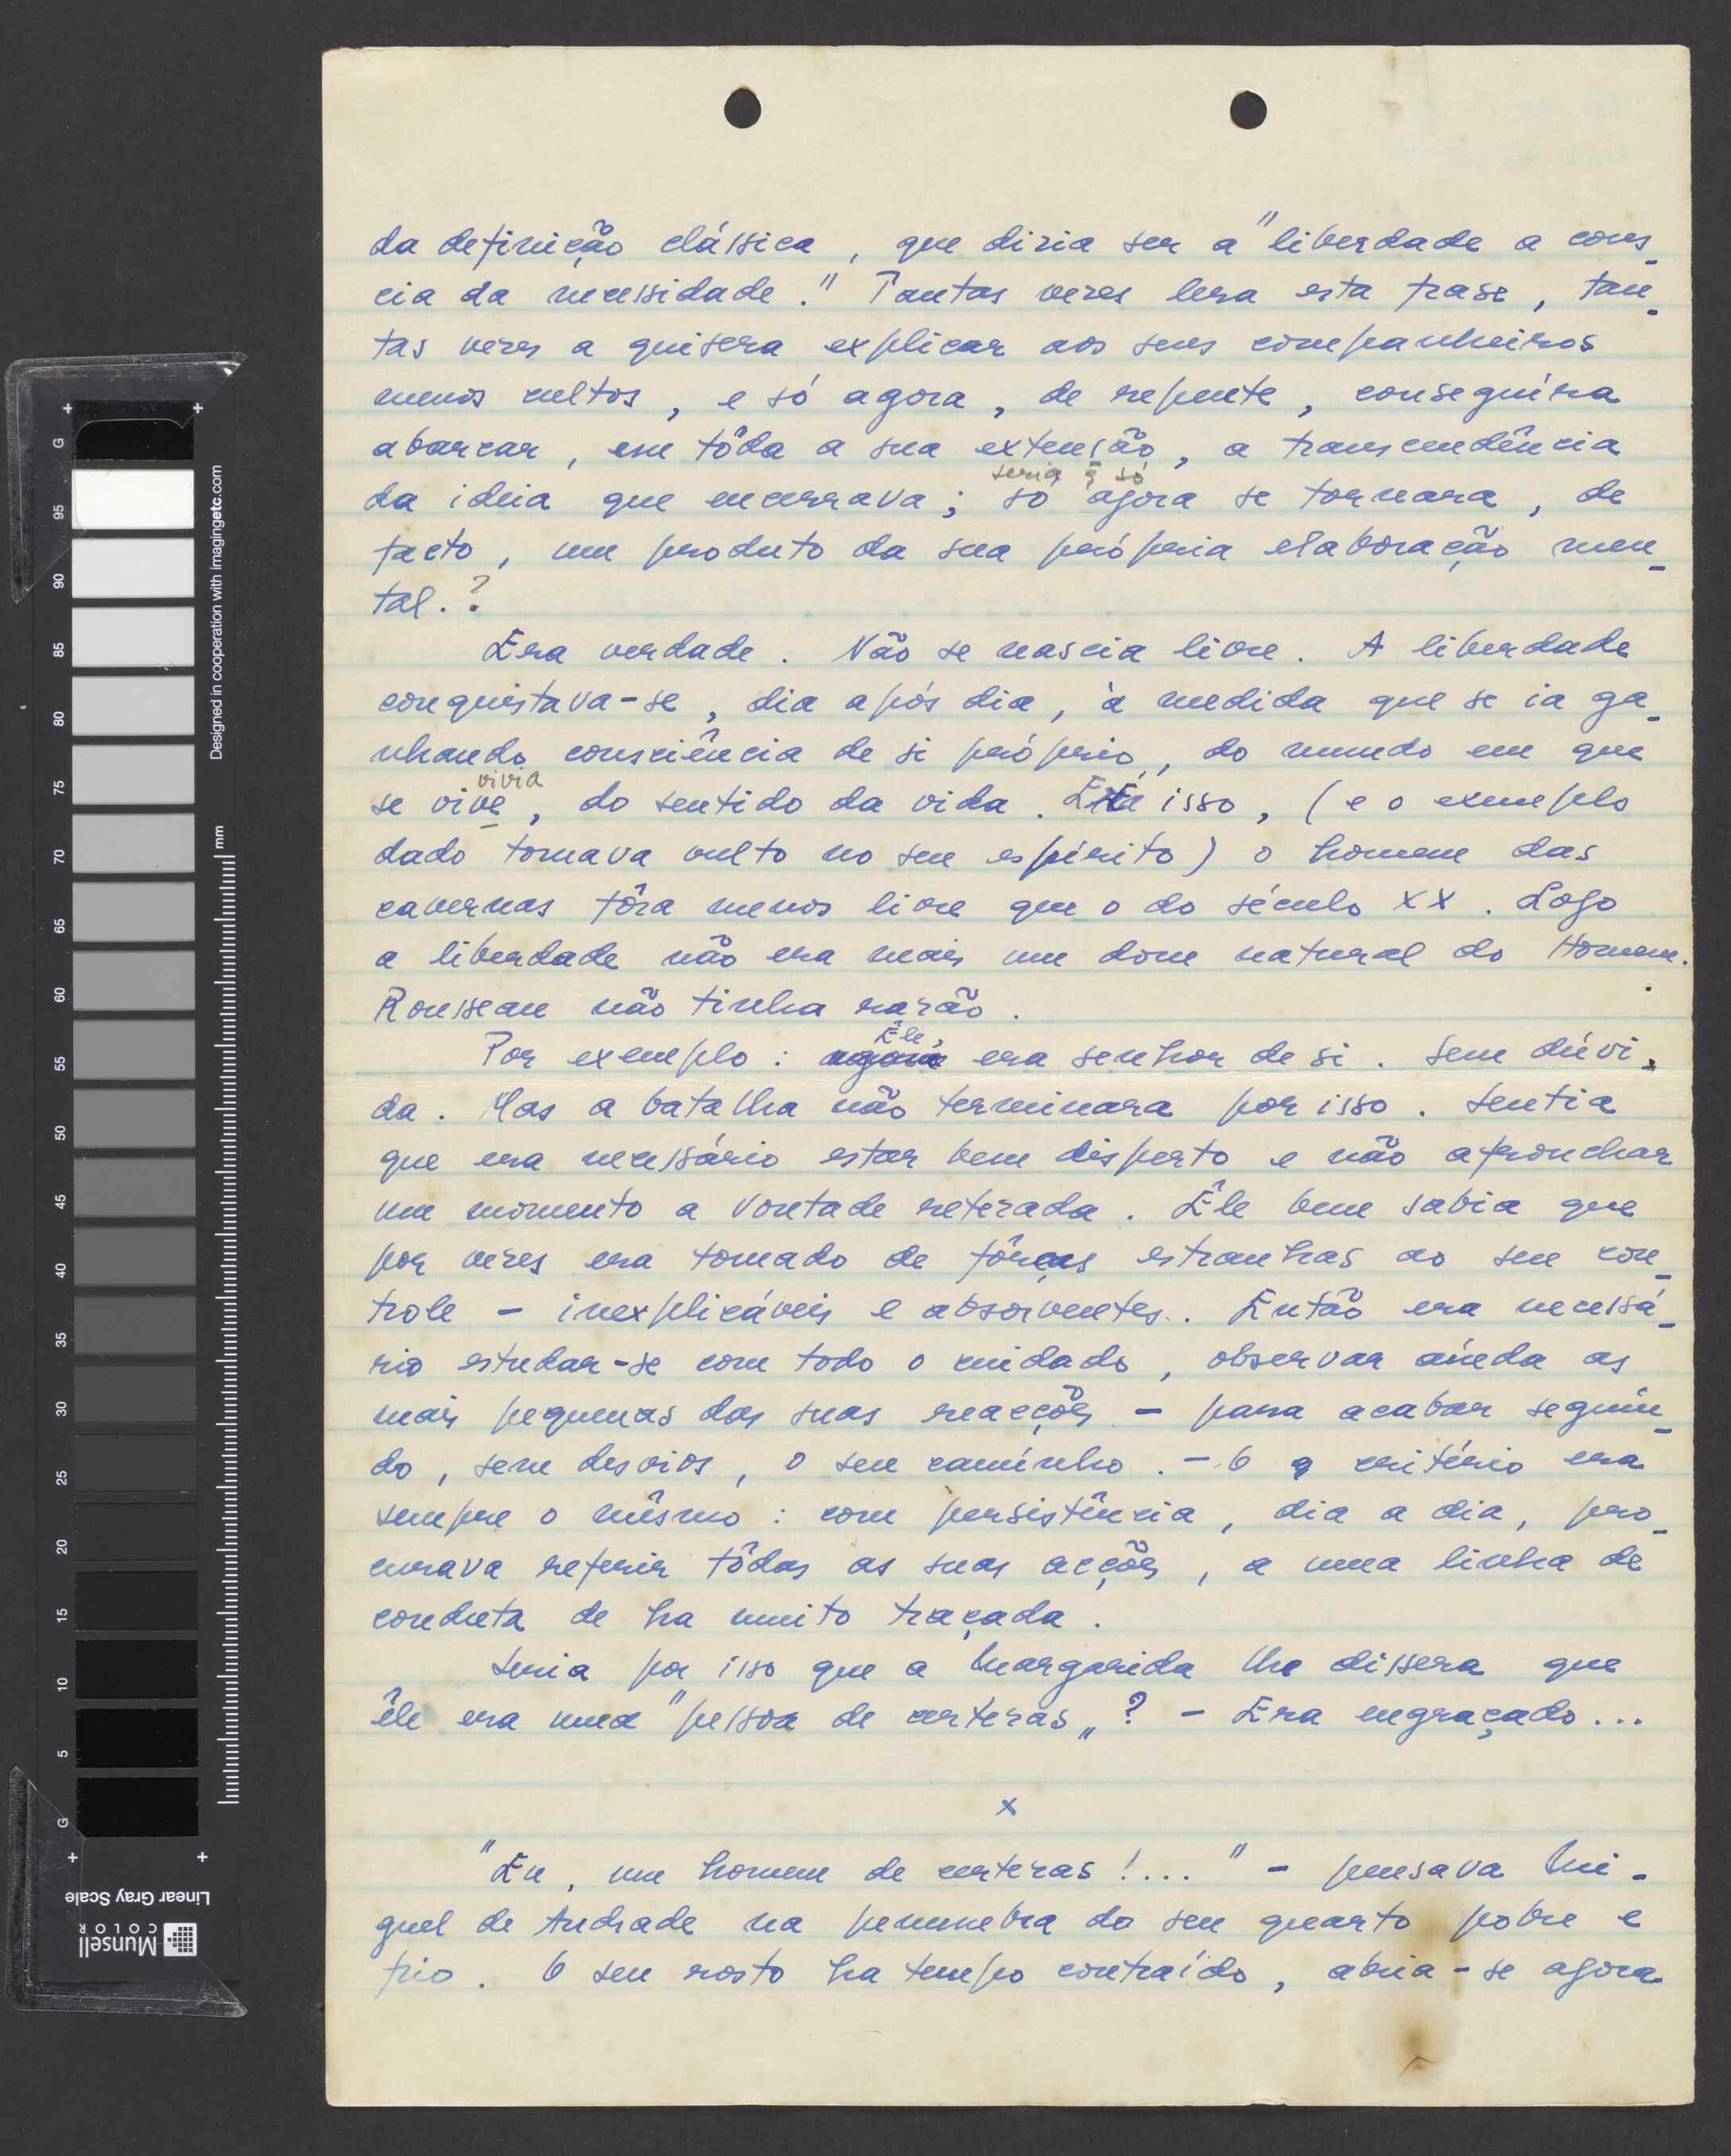 da definição clássica, que dizia ser a "liberdade a cons_
cia da necessidade." Tantas vezes lera esta frase, tan_
tas vezes a quisera explicar aos seus companheiros
menos cultos, e só agora, de repente, conseguíra
abarcar, em tôda a sua extensão, a transcendência
seria q só
da ideia que encerrava; só agora se tornara, de
facto, um produto da sua própria elaboração men_
tal.?
Era verdade. Não se nascia livre. A liberdade
conquistava-se, dia após dia, à medida que se ia ga_
nhando consciência de si próprio, do mundo em que
vivia
se vive, do sentido da vida. E isso, (e o exemplo
dado tomava vulto no seu espírito) o homem das
cavernas fôra menos livre que o do século XX. Logo
a liberdade não era mais um dom natural do Homem.
Rousseau não tinha razão.
Êle,
Por exemplo: agora era senhor de si. Sem dúvi_
da. Mas a batalha não terminara por isso. Sentia
que era necessário estar bem disperto e não afrouchar
um momento a vontade retezada. Êle bem sabia que
por vezes era tomado de fôrças estranhas ao seu con_
trole - inexplicáveis e absorventes. Então era necessá_
rio estudar-se com todo o cuidado, observar aínda as
mais pequenas das suas reacções - para acabar seguín_
do, sem desvios, o seu camínho. - O critério era
sempre o mêsmo: com persistência, dia a dia, pro_
curava referir tôdas as suas acções, a uma linha de
conduta de ha muito traçada.
Seria por isso que a Margarida lhe dissera que
êle era uma "pessoa de certezas„? - Era engraçado...
x
"Eu, um homem de certezas!..." - pensava Mi_
guel de Andrade na penumbra do seu quarto pobre e
frio. O seu rosto ha tempo contraído, abria-se agora
+ +
G
95
90
85
80
75
70
65
60
55
50
45
40
35
30
25
20
15
10
5
G
+ +
Designed in cooperation with imagingetc.com
mm
Linear Gray Scale
Munsell
COLOR